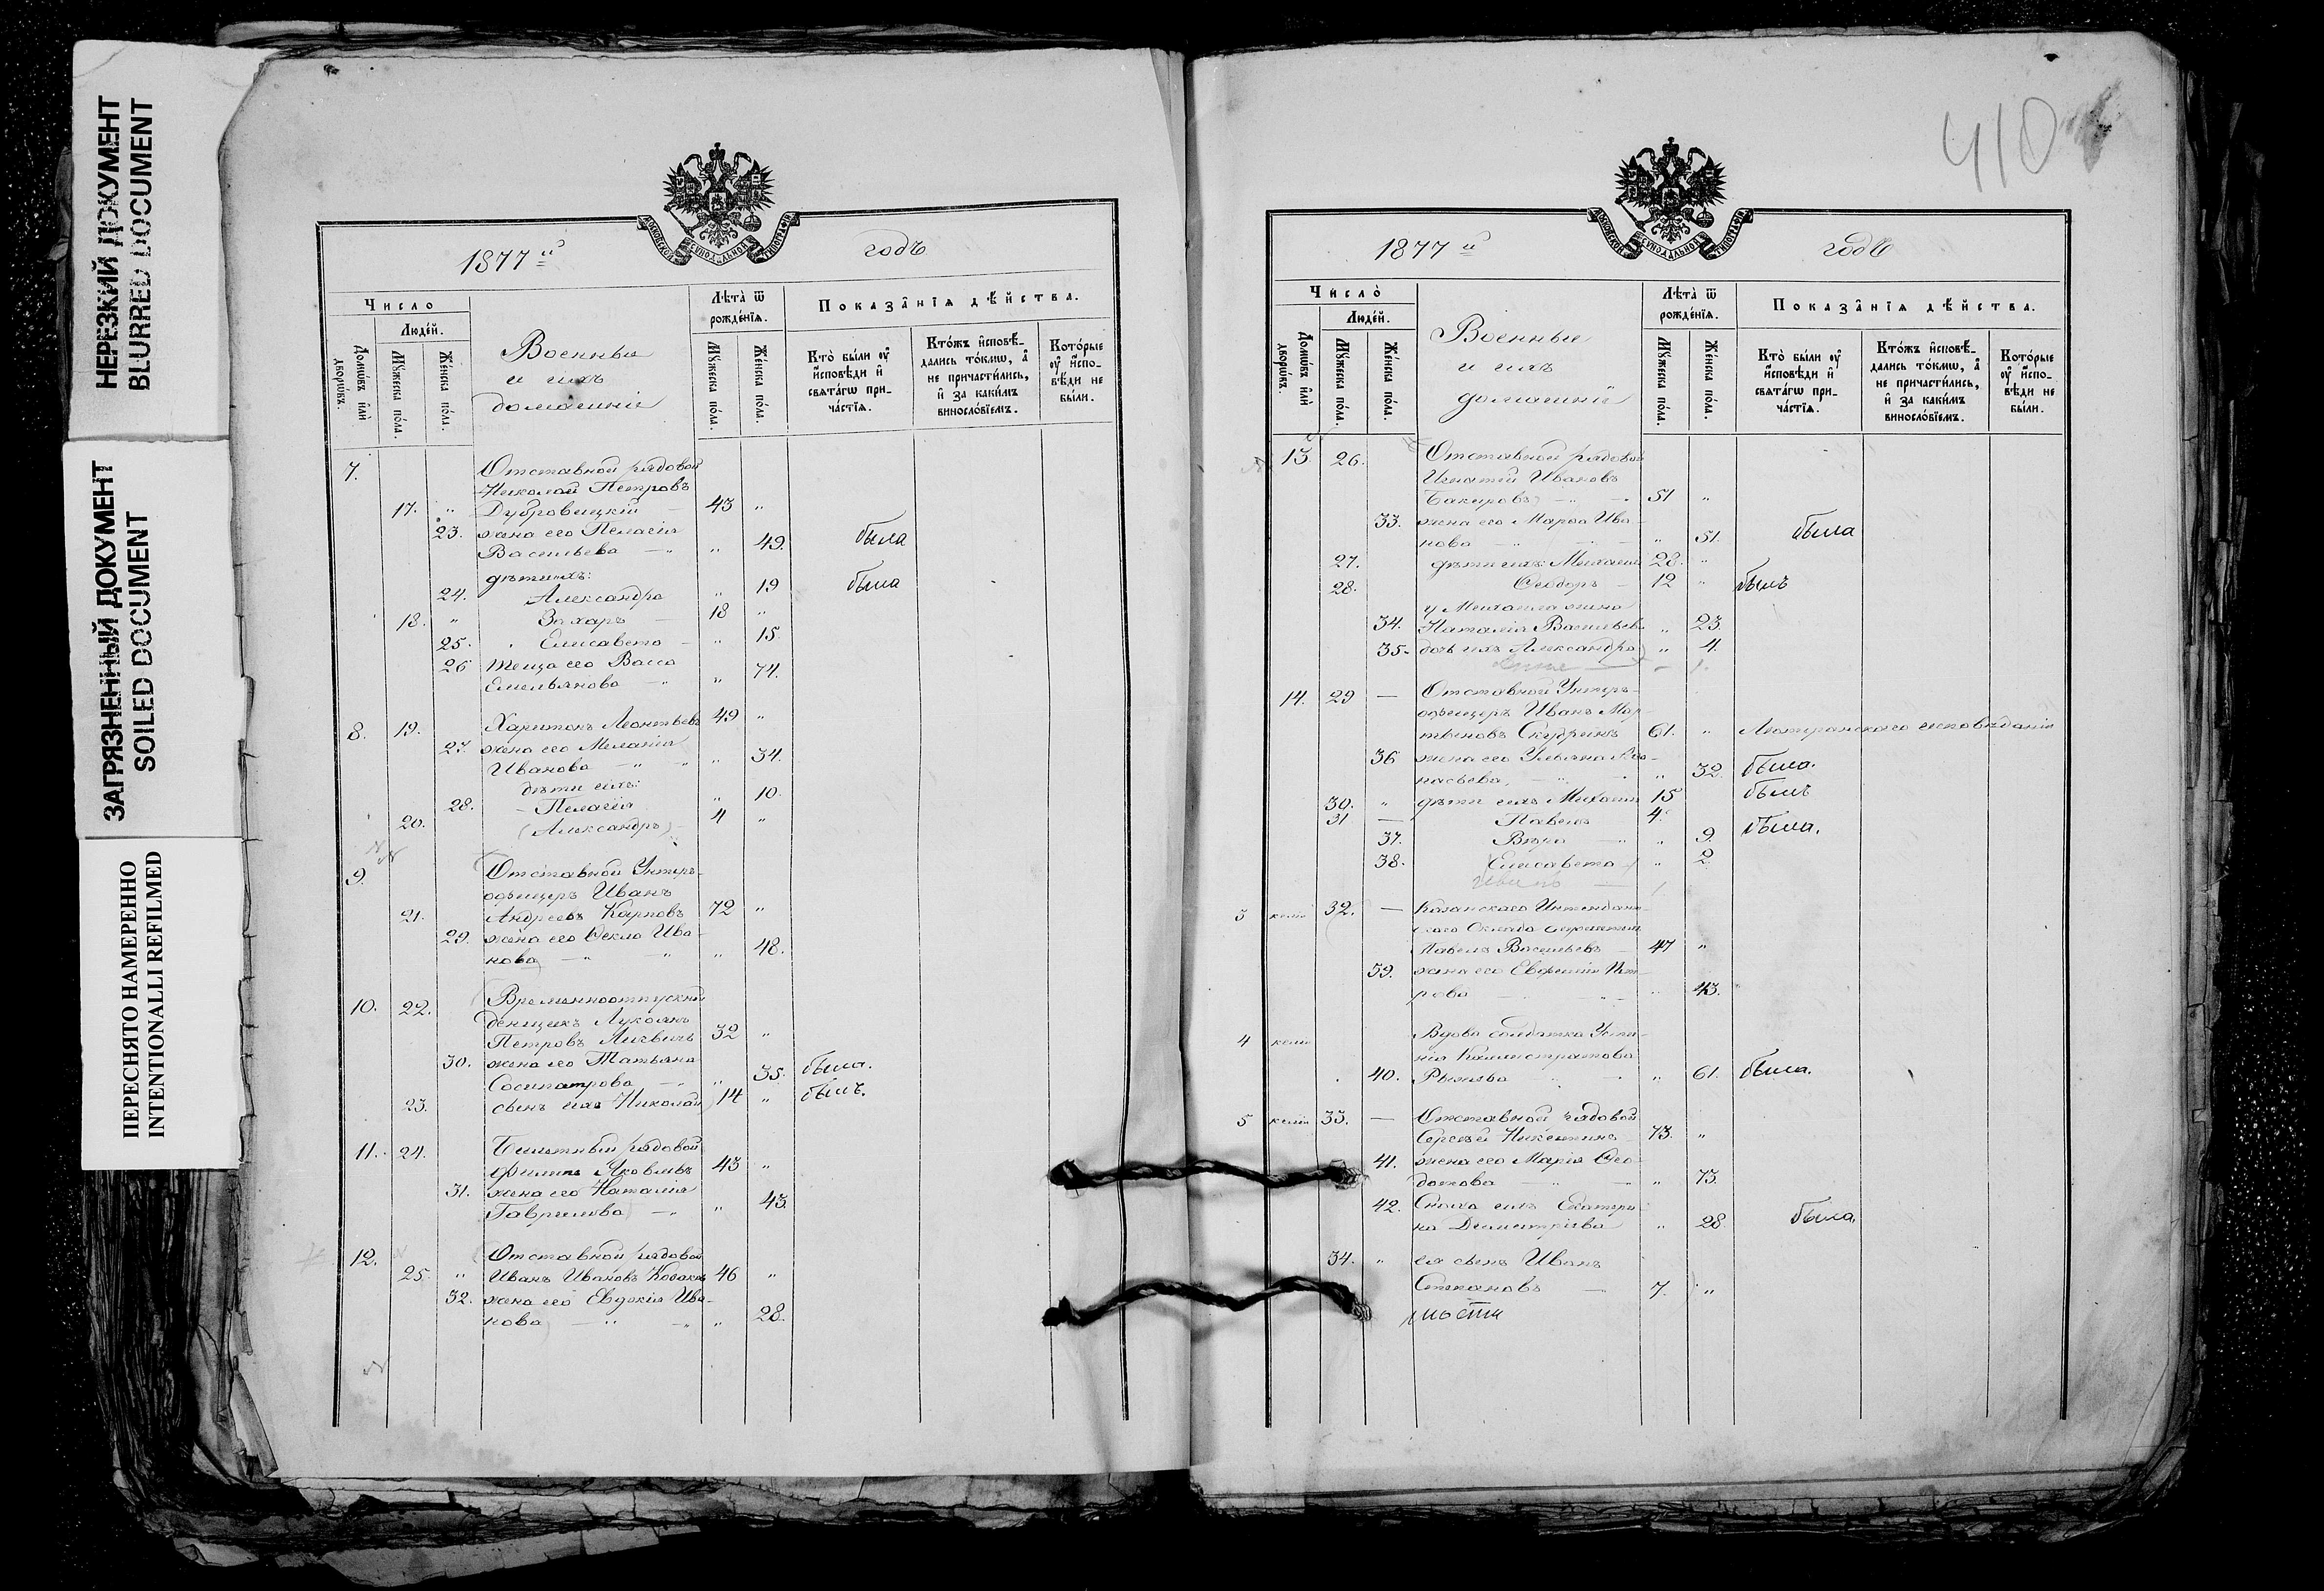 НЕРЕЗКИЙ ДОКУМЕНТ
BLURRED DOCUMENT
ЗАГРЯЗНЕННЫЙ ДОКУМЕНТ
SOILED DOCUMENT
ПЕРЕСНЯТО НАМЕРЕННО
INTENTIONALLI REFILMED
МОСКОВСКОЙ СѴНОДАЛЬНОЙ ТИПОГРАФІИ
1877й годъ
Число̀
Люде́й.
Домѡ́въ и҆лѝ дворѡ́въ.
Мꙋ́жеска по́ла.
Же́нска по́ла.
Военные
и ихъ
домашніе
Лѣта̀ ѿ рожде́нїѧ.
Мꙋ́жеска по́ла.
Же́нска по́ла.
Показа̑нїѧ дѣ́йства.
Кто̀ бы́ли оу҆ и҆сповѣ́ди и҆ свѧта́гѡ при-ча́стїѧ.
Кто́жъ и҆сповѣ́-дались то́кмѡ, а҆ не причасти́лись, и҆ за каки́мъ винослові́емъ.
Кото́рые оу҆ и҆спо-вѣ́ди не бы́ли.
7. Отставной рядовой
Николай Петровъ
17. " Дубровицкій - 43 "
23. жена его Пелагія
Васильева - " " 49. была
дѣти ихъ:
24. Александра " 19 была
18. " Захаръ - 18 "
25. " Елисавета - " 15.
26 теща его Васса
Емельянова - " " 74.
8. 19. Харитонъ Леонтьевъ 49 "
27. жена его Меланія
Иванова - " - " " 34.
дѣти ихъ:
28. - Пелагія " 10.
20. (Александръ) - 4 "
9. Отставной Унтеръ-
офицеръ Иванъ
21. Андреевъ Карповъ 72 "
29. жена его Ѳекла Ива-
нова) - " " " 48.
10. 22. Временноотпускной
денщикъ Лукіянъ
Петровъ 32 "
30. жена его Татьяна
Сосипатрова - " " 35. была.
23. сынъ ихъ Николай 14 " былъ.
11. 24. Билетный рядовой
Филиппъ Яковлевъ 43 "
31. жена его Наталія
Гаврилова) - " " 43.
12. Отставной рядовой
25. " Иванъ Ивановъ Козаковъ 46 "
32. жена его Евдокія Ива-
нова) - " - " " 28.
410
МОСКОВСКОЙ СѴНОДАЛЬНОЙ ТИПОГРАФІИ
1877й годъ
Число̀
Люде́й.
Домѡ́въ и҆лѝ дворѡ́въ.
Мꙋ́жеска по́ла.
Же́нска по́ла.
Военные
и ихъ
домашніе
Лѣта̀ ѿ рожде́нїѧ.
Мꙋ́жеска по́ла.
Же́нска по́ла.
Показа̑нїѧ дѣ́йства.
Кто̀ бы́ли оу҆ и҆сповѣ́ди и҆ свѧта́гѡ при-ча́стїѧ.
Кто́жъ и҆сповѣ́-дались то́кмѡ, а҆ не причасти́лись, и҆ за каки́мъ винослові́емъ.
Кото́рые оу҆ и҆спо-вѣ́ди не бы́ли.
13. 26. Отставной рядовой
Игнатій Ивановъ
Бакировъ) - " - 51 "
33. жена его Марѳа Ива-
нова - " - " 51. была
27. дѣти ихъ: Михаилъ 28. "
28. Ѳеодоръ - 12 " былъ
у Михаила жена
34. Наталія Васильева " 23.
35. дочь ихъ Александра) " 4.
14. 29 — Отставной Унтеръ-
офицеръ Иванъ Мар-
тыновъ Скудринъ 61. " Лютеранскаго исповѣданія
36 жена его Ульяна Аѳа-
насьева, - " - " 32. была.
30. " дѣти ихъ Михаилъ 15 былъ
31 — Павелъ 4.
37. Вѣра - " " 9. была.
38. (Елисавета -) " 2.
3 келья 32. — Казанскаго Интендант-
скаго Склада
Павелъ Васильевъ - 47 "
39. жена его Евфимія Пет-
рова - " - " 43.
4 келья Вдова солдатка
Каллистратова
40. " 61. была.
5 келья 33. — Отставной рядовой
Сергѣй Никитинъ 73. "
41. жена его Марія Ѳео-
дотова - " - " 73.
42. Сноха ихъ Екатери-
на Димитріева " 28. была.
34. " ея сынъ Иванъ
Степановъ - 7. "